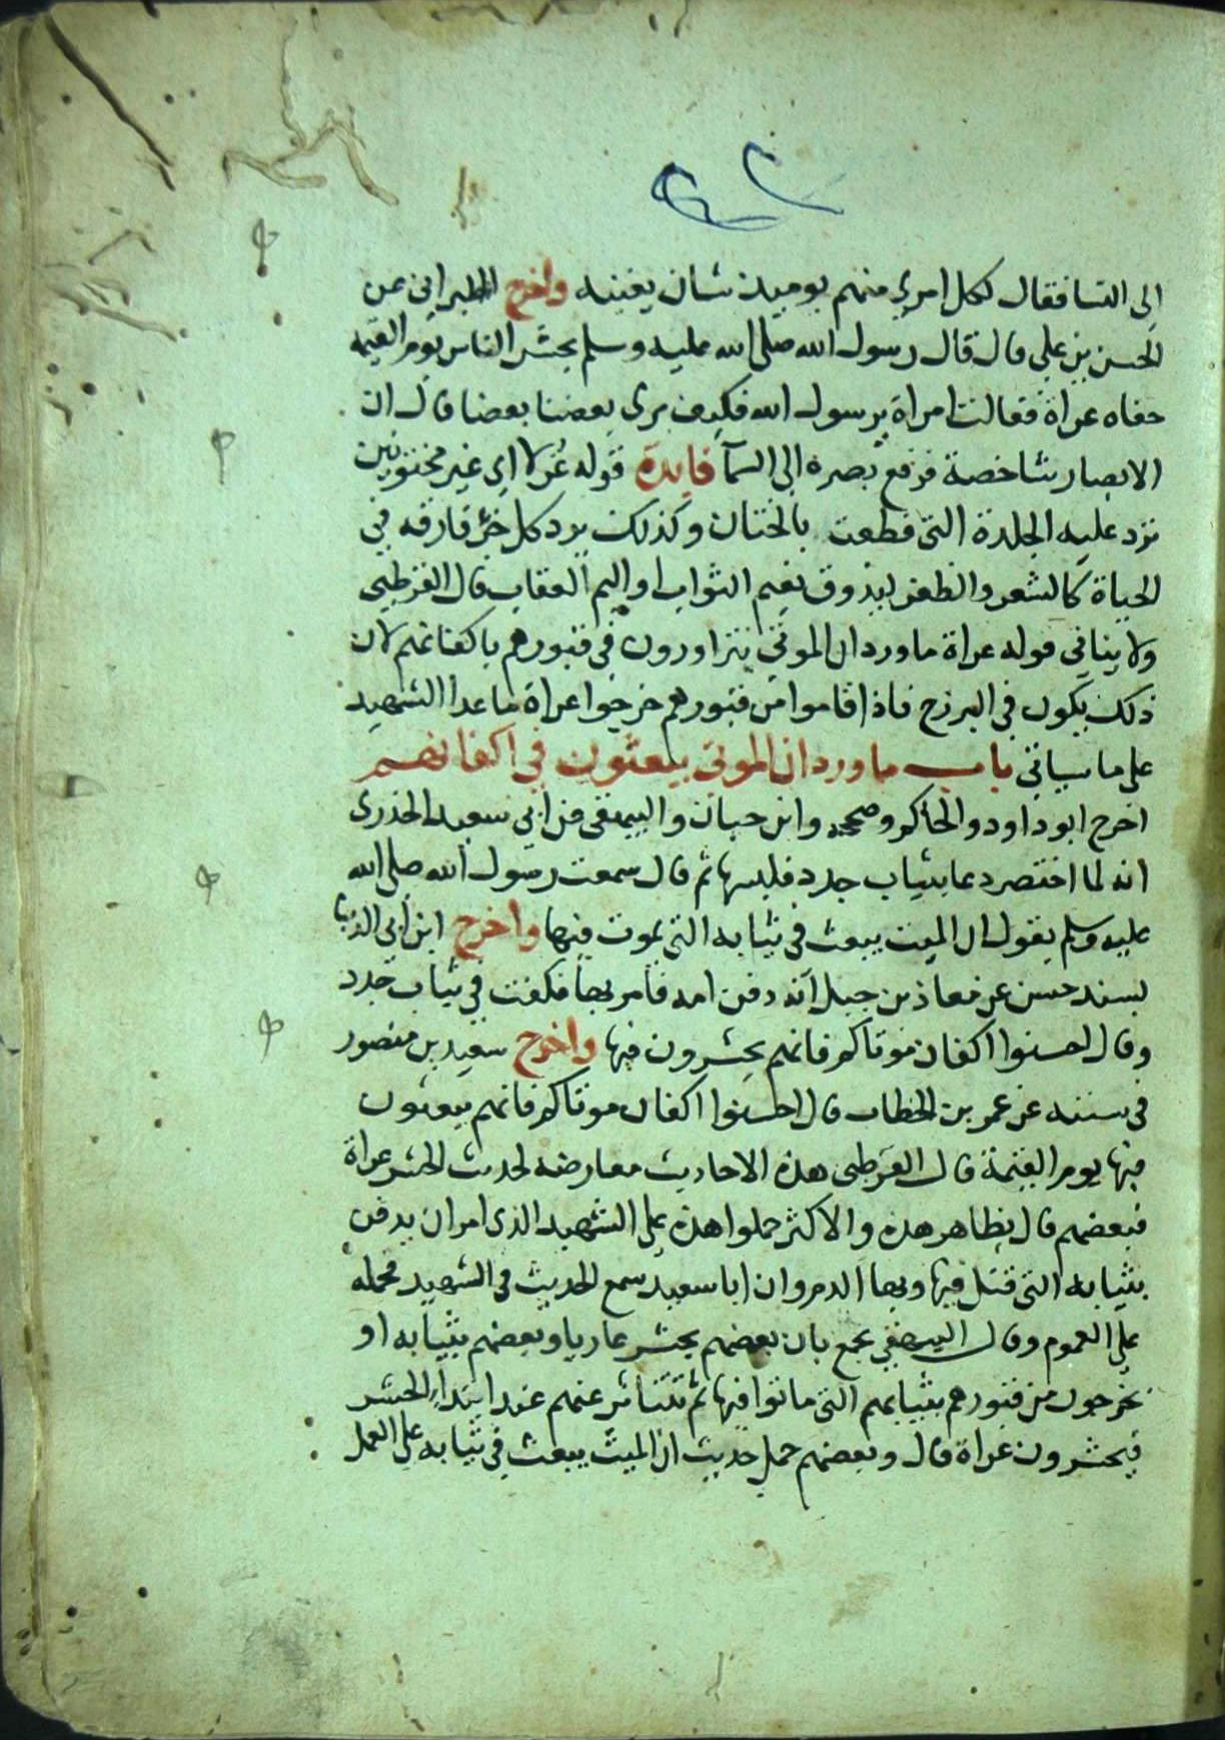 الى النسا فقال لكل امري منهم يوميذ شان يغنيه واخرج الطبراني عن
الحسن بن علي قال قال رسول الله صلى الله عليه وسلم يحشر الناس يوم القيمه
حفاه عراة فقالت امراة يرسول الله فكيف يرى بعضنا بعضا قال ان
الابصار شاخصة فرفع بصره الى السمآ فايدة قوله غرلا اي غير مختونين
ترد عليه الجلدة التى قطعت بالختان وكذلك يرد كل جزء فارقه في
الحياة كالشعر والظفر ليذوق نعيم الثواب او اليم العقاب قال القرطبي
ولا ينافي قوله عراة ما ورد ان الموتي يتزاورون في قبورهم باكفانهم لان
ذلك يكون في البرزخ فاذا قاموا من قبورهم خرجوا عراة ما عدا الشهيد
على ما سياتي باب ما ورد ان الموتي يبعثون في اكفانهم
اخرج ابو داود والحاكم وصححه وابن حبان والبيهقى عن ابي سعيد الخدري
انه لما احتضر دعا بثياب جدد فلبسها ثم قال سمعت رسول الله صلى الله
عليه وسلم يقول ان الميت يبعث في ثيابه التي يموت فيها واخرج ابن ابي الدنيا
بسند حسن عن معاذ بن جبل انه دفن امه فامر بها فكفنت في ثياب جدد
وقال احسنوا اكفان موتاكم فانهم يحشرون فيها واخرج سعيد بن منصور
في سننه عن عمر بن الخطاب قال احسنوا اكفان موتاكم فانهم يبعثون
فيها يوم القيمة قال القرطبى هذه الاحاديث معارضه لحديث الحشر عراة
فبعضهم قال بظاهر هذه والاكثر حملوا هذه على الشهيد الذى امر ان يدفن
بثيابه التى قتل فيها وبها الدم وان ابا سعيد سمع الحديث في الشهيد فحمله
على العموم وقال البيهقي يجمع بان بعضهم يحشر عاريا وبعضهم بثيابه او
يخرجون من قبورهم بثيابهم التي ماتوا فيها ثم تتناثر عنهم عند ابتداء الحشر
فيحشرون عراة قال وبعضهم حمل حديث ان الميت يبعث في ثيابه على العمل